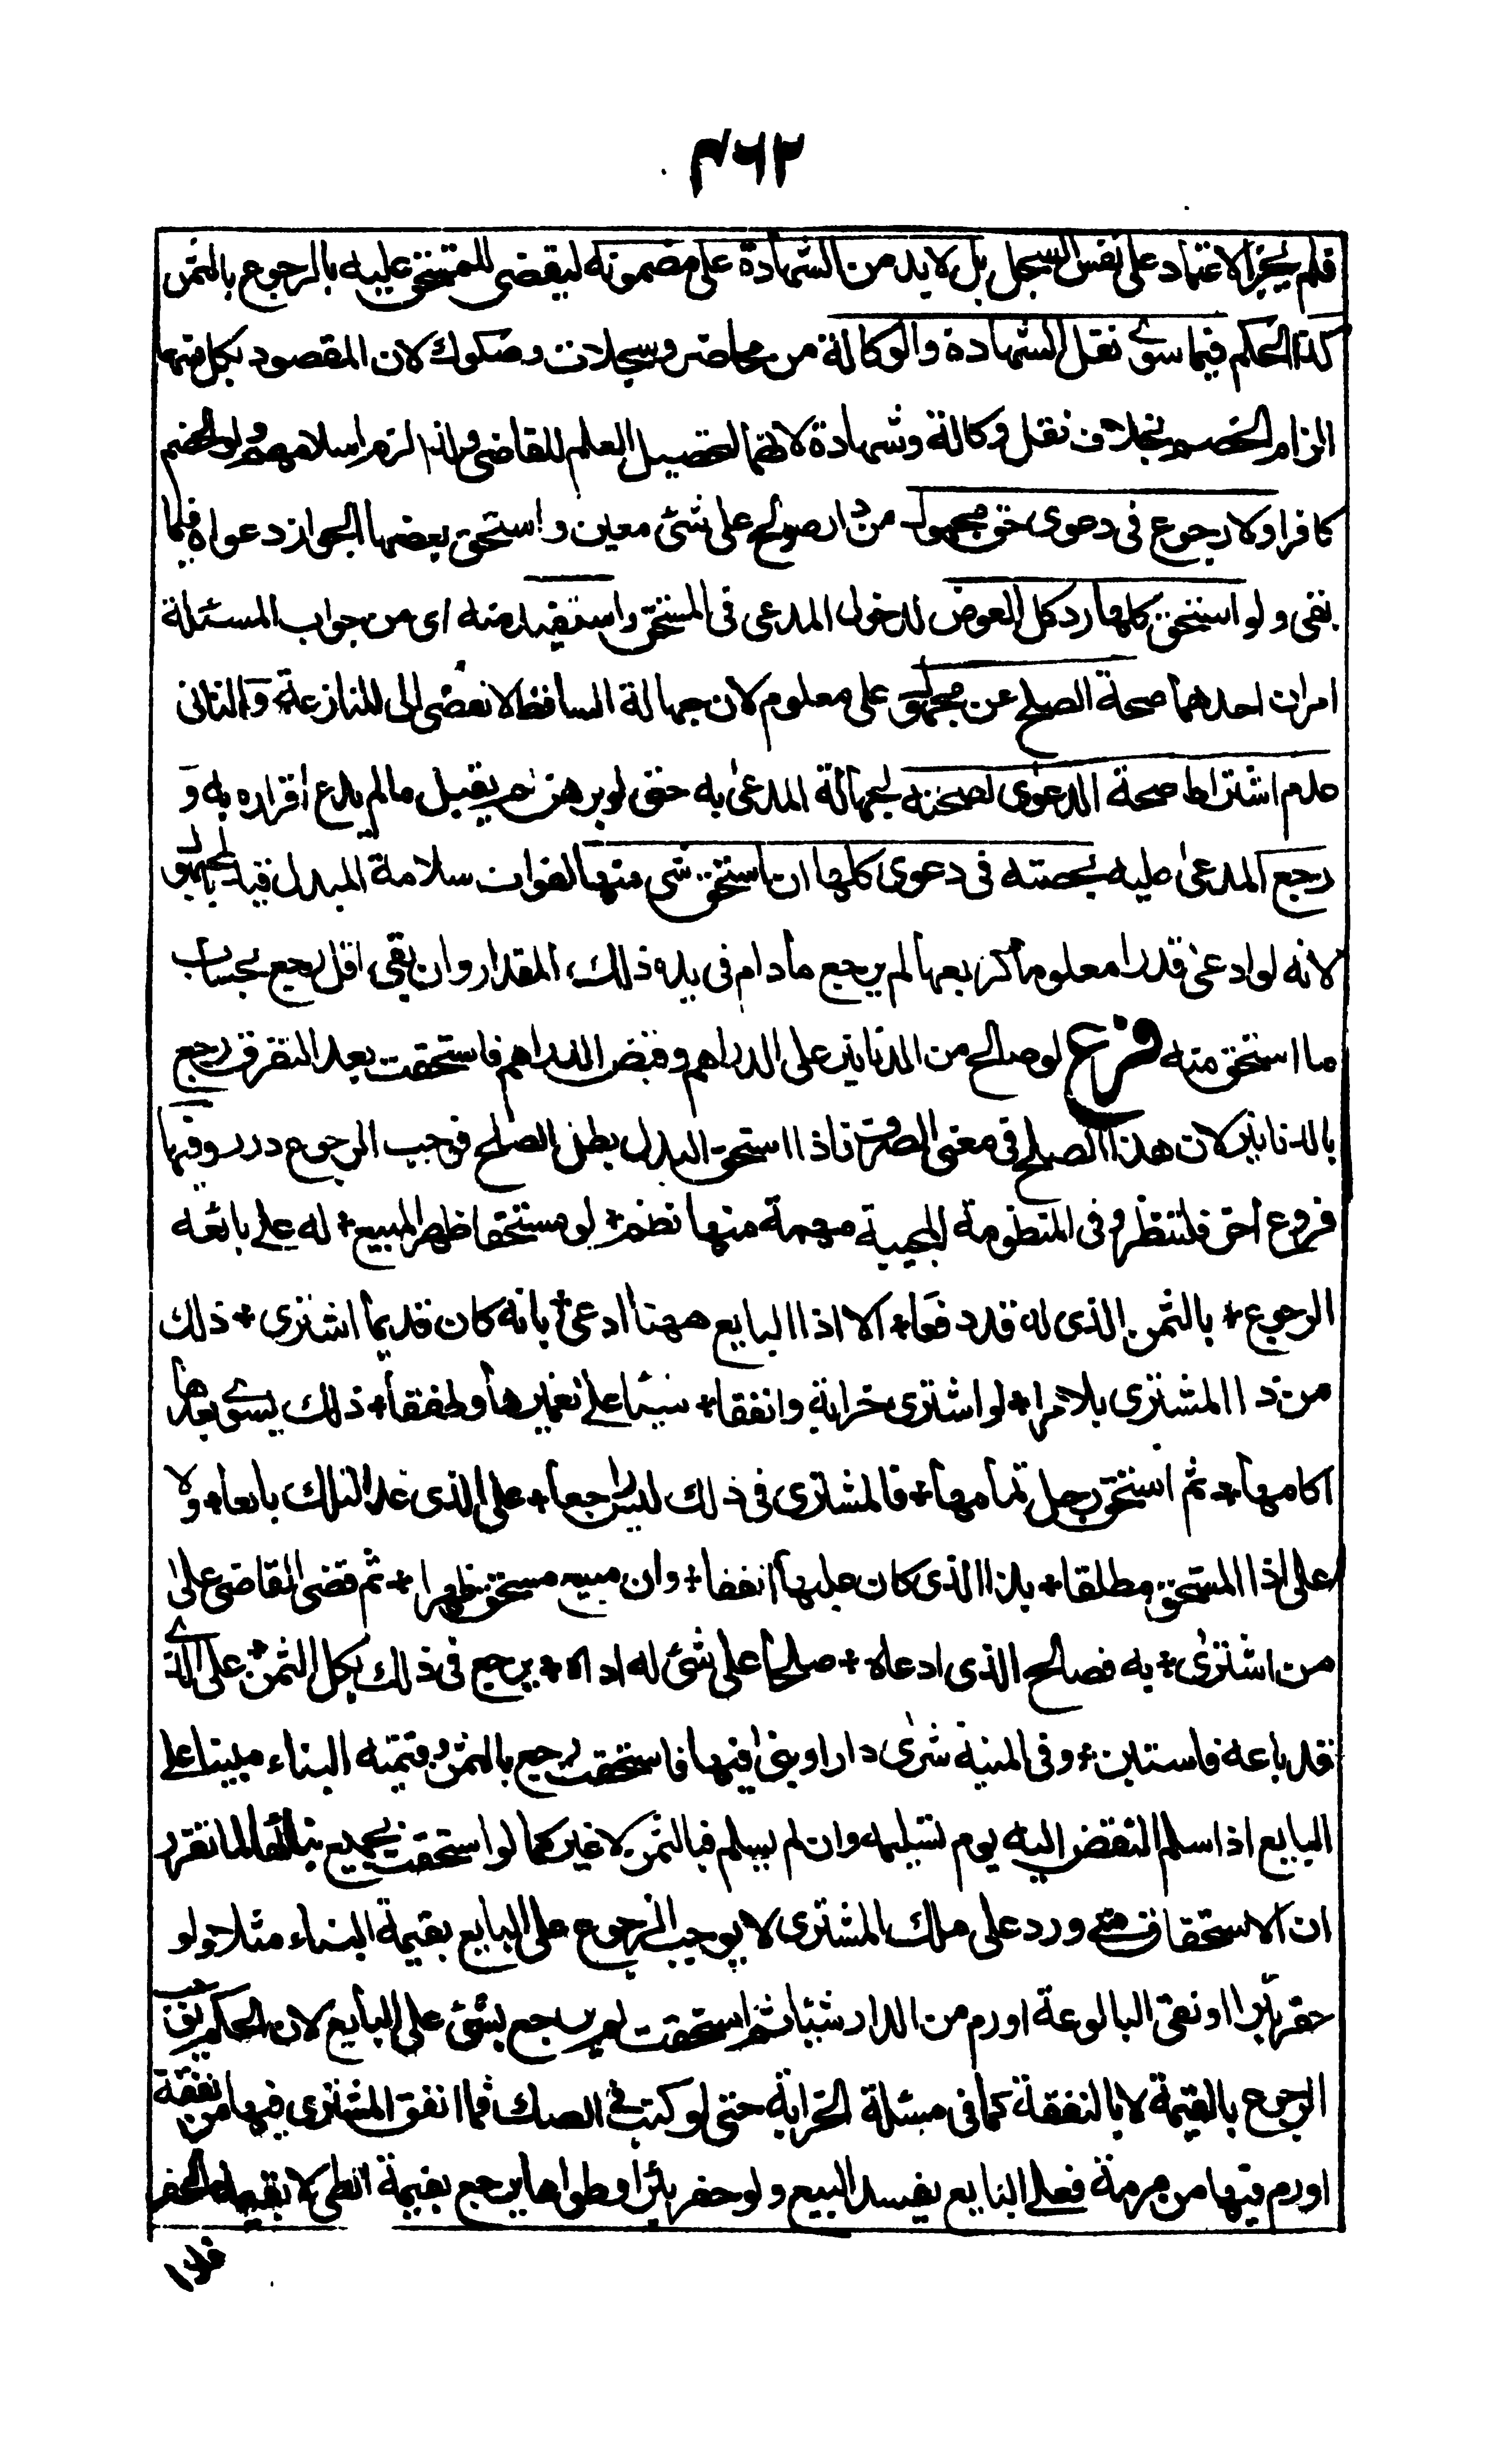 ۴۶۲
فلم يجز الاعتماد على نفس السجل بل لابد من الشهادة على مضمونه ليقضى للمستحق عليه بالرجوع بالثمن
كذا الحكم فيما سوى نقل الشهادة والوكالة من محاضر وسجلات وصكوك لان المقصود بكل منها
الزام الخصم بخلاف نقل وكالة وشهادة لانهما لتحصيل العلم للقاضى ولذا لزم اسلامهم ولو الخصم
كافرا ولا رجوع فى دعوى حق مجهول من دار صولح على شئ معين واستحق بعضها لجواز دعواه فيما
بقى ولو استحق كلها رد كل العوض لدخول المدعى فى المستحق واستفيد منه اى من جواب المسئلة
امران احدهما صحة الصلح عن مجهول على معلوم لان جهالة الساقط لا تفضى الى المنازعة والثانى
عدم اشتراط صحة الدعوى لصحته لجهالة المدعى به حتى لو برهن لم يقبل مالم يدع اقراره به و
رجع المدعى عليه بحصته فى دعوى كلها ان استحق شى منها لفوات سلامة المبدل قيد بالمجهول
لانه لو ادعى قدرا معلوما كربعها لم يرجع مادام فى يده ذلك المقدار وان بقى اقل رجع بحساب
ما استحق منه فرع لو صالح من الدنانير على الدراهم وقبض الدراهم فاستحقت بعد التفرق رجع
بالدنانير لان هذا الصلح فى معنى الصرف فاذا استحق البدل بطل الصلح فوجب الرجوع درر وفيها
فروع اخر فلتنظر وفى المنظومة المحبية مهمة منها نظم + لو مستحقا ظهر المبيع + له على بائعه
الرجوع + بالثمن الذى له قد دفعا + الا اذا البايع ههنا ادعى + بانه كان قديما اشترى + ذلك
من ذا المشترى بلا مرا + لو اشترى خرابة وانفقا + شيئا على تعميرها وطفقا + ذلك يسوى بعدها
اكامها + ثم استحق رجل تمامها + فالمشترى فى ذلك ليس راجعا + على الذى غدا لتلك بايعا + ولا
على اذا المستحق مطلقا + بذا الذى كان عليها انفقا + وان مبيع مستحق ظهرا + ثم قضى القاضى على
من اشترى + به فصالح الذى ادعاه + صلحا على شئ له اداه + يرجع فى ذلك بكل الثمن + على الذى
قد باعه فاستبن + وفى المنية شرى دارا وبنى فيها فاستحقت رجع بالثمن وقيمته البناء مبينا على
البايع اذا سلم النقض اليه يوم تسليمه وان لم يسلم فبالثمن لا غير كما لو استحقت بجميع بنائها لما تقرر
ان الاستحقاق متى ورد على ملك المشترى لا يوجب الرجوع على البايع بقيمة البناء مثلا ولو
حفر بئرا او نقى البالوعة او رم من الدار شيئا ثم استحقت لم يرجع بشئ على البايع لان الحكم يوجب
الرجوع بالقيمة لا بالنفقة كما فى مسئلة الخرابة حتى لو كتب فى الصك فما انفق المشترى فيها من نفقة
او رم فيها من مرمة فعلى البايع يفسد البيع ولو حفر بئرا وطواها يرجع بقيمة الطى لا بقيمة الحفر